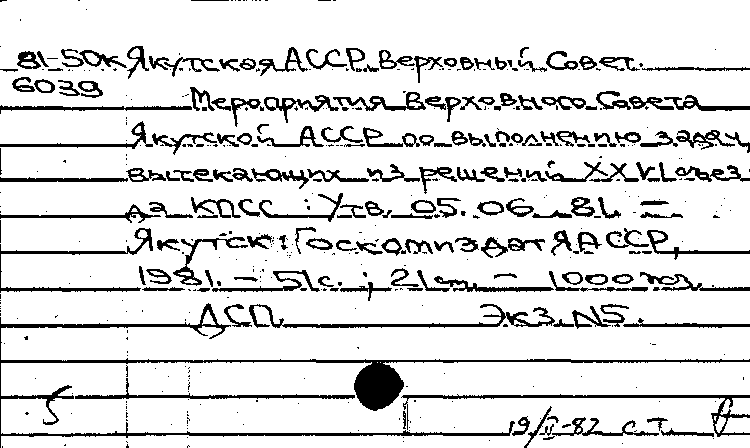 81-50к Якутская АССР. Верховный Совет.
6039
Мероприятия Верховного Совета
Якутской АССР по выполнению задач,
вытекающих из решений XXVI съез-
да КПСС : Утв. 05.06.81. –
Якутск : Госкомиздат ЯАССР,
1981. – 51 с. ; 21 см. – 1000 экз.
ДСП. Экз. N5.
5
19/II-82 с.т.